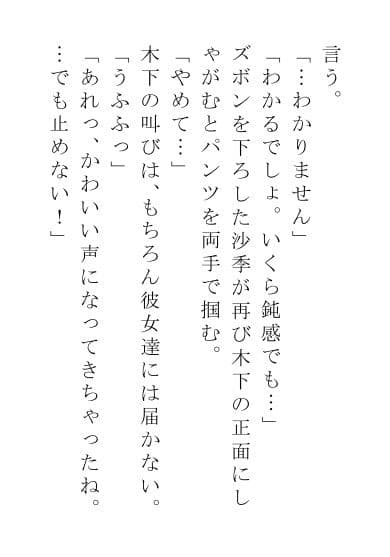 言う。
「…わかりません」
「わかるでしょ。いくら鈍感でも…」
ズボンを下ろした沙季が再び木下の正面にし
ゃがむとパンツを両手で掴む。
「やめて…」
木下の叫びは、もちろん彼女達には届かない。
「うふふっ」
「あれっ、かわいい声になってきちゃったね。
…でも止めない！」